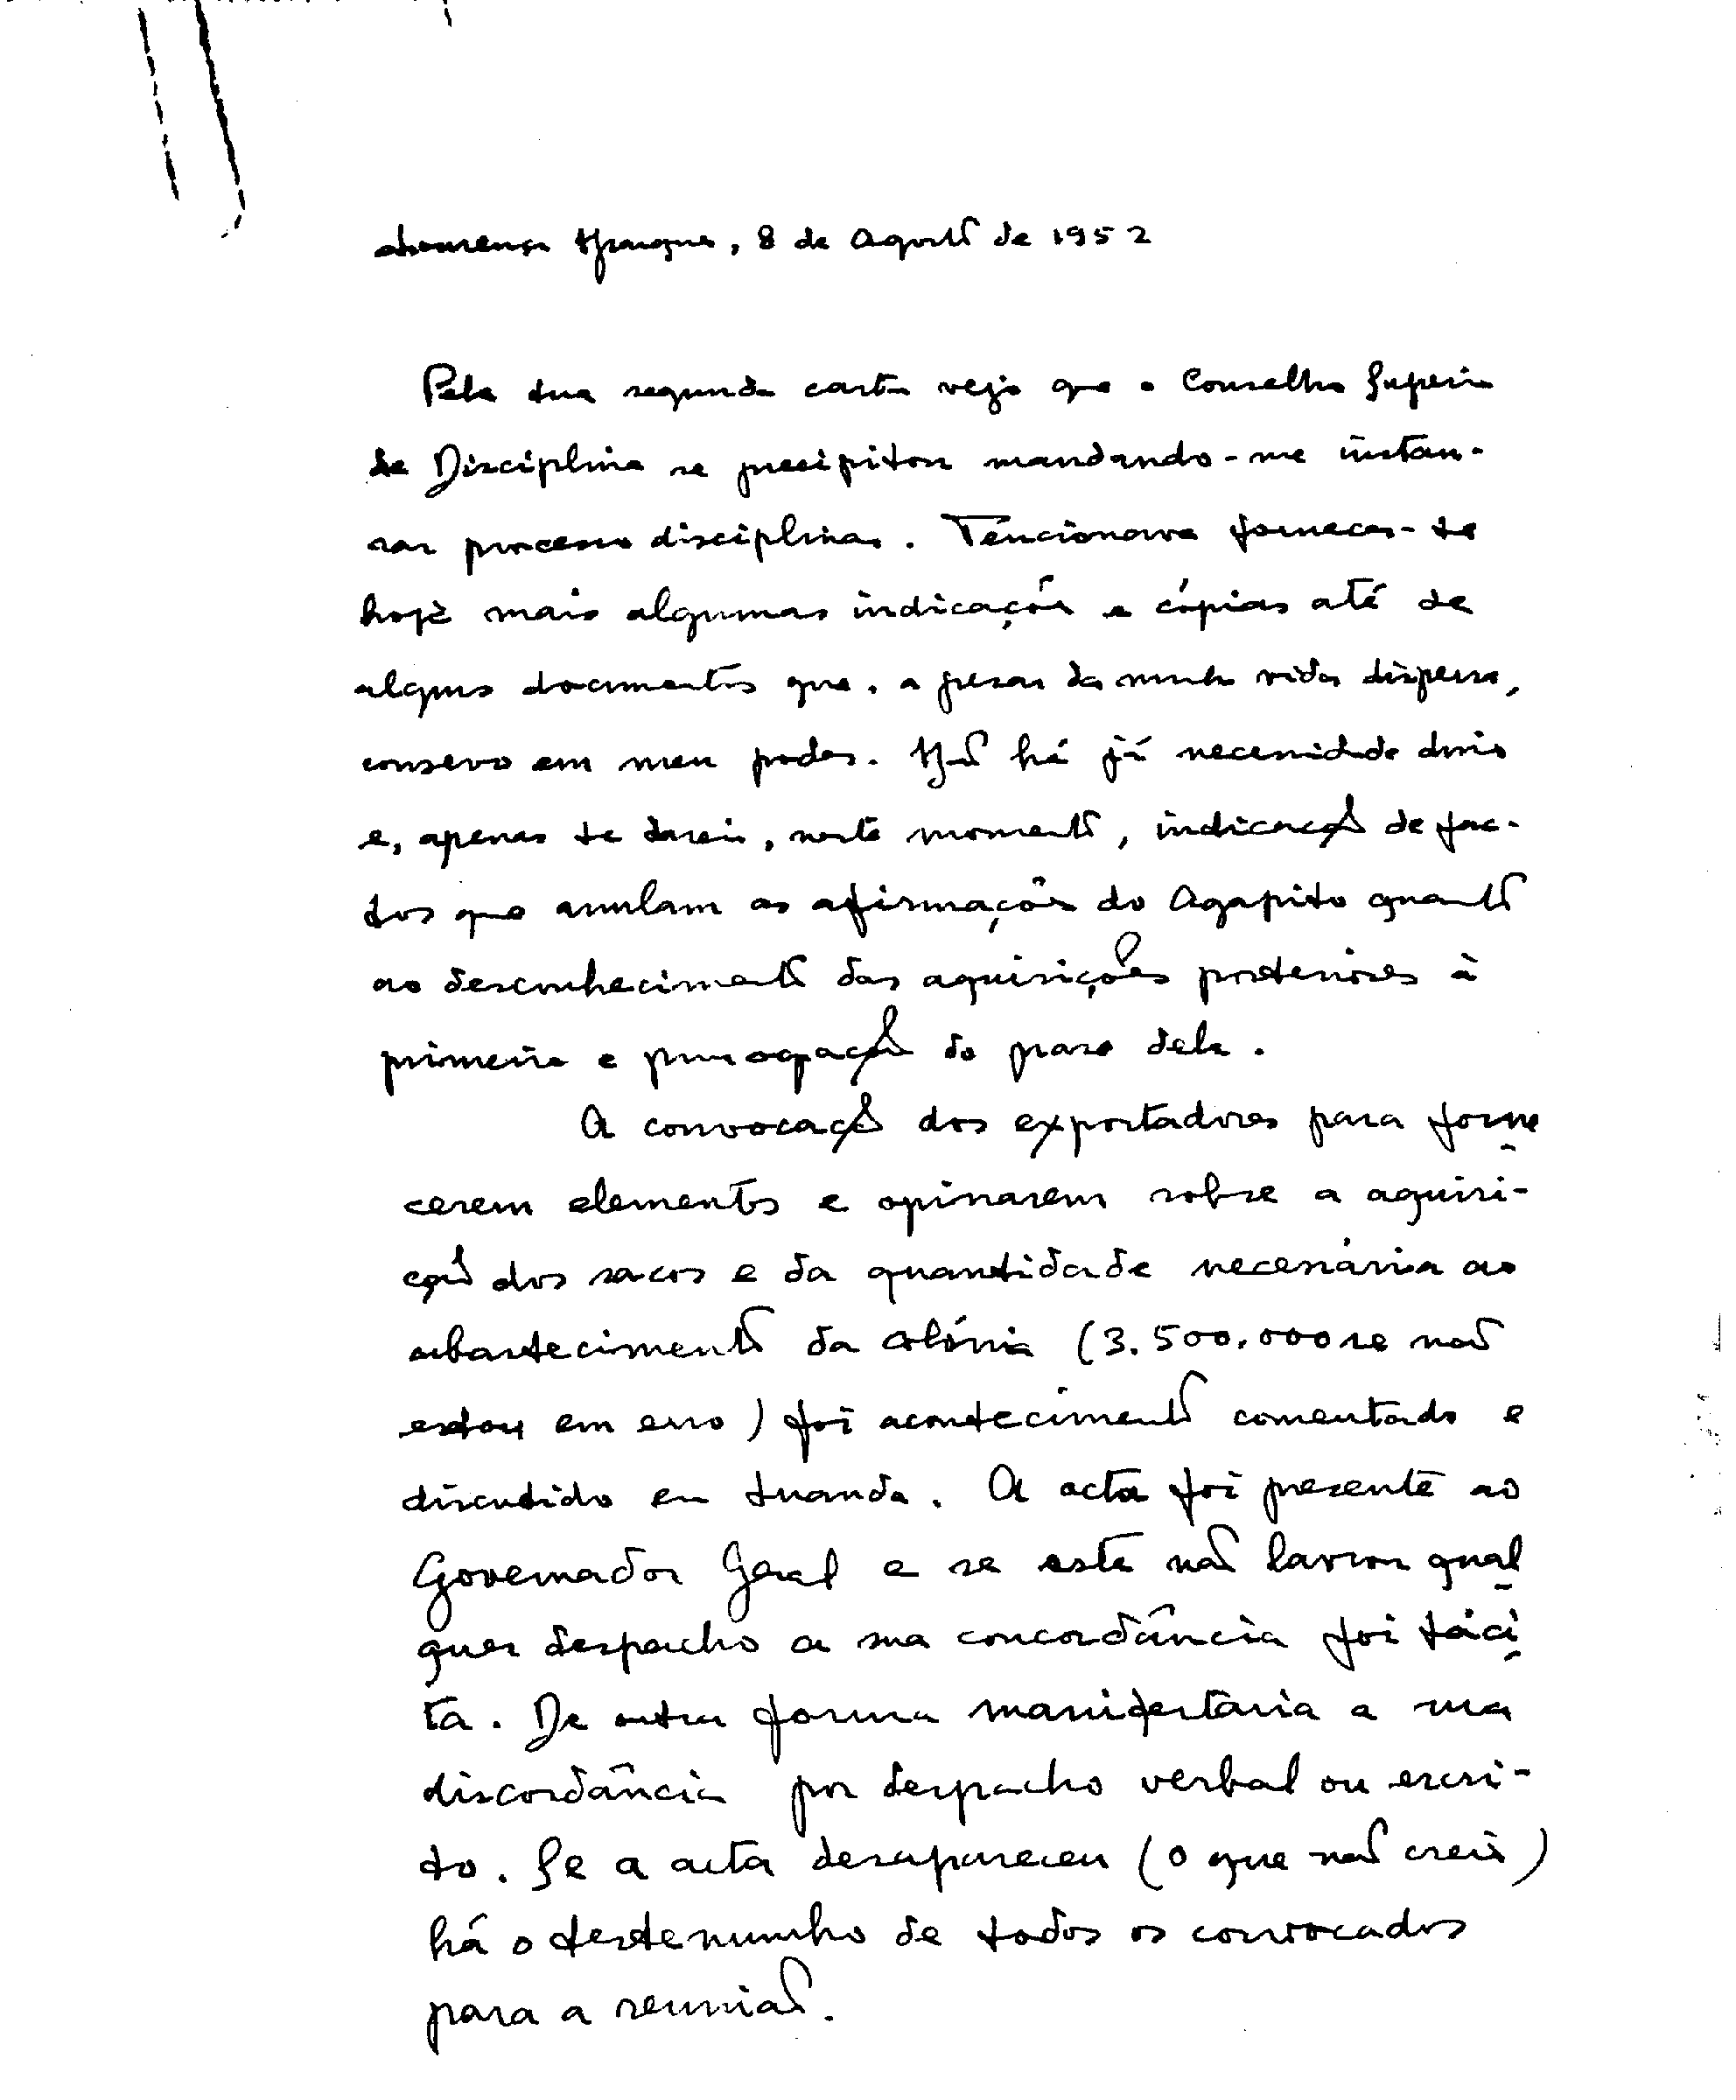 Lourenço Marques, 8 de Agosto de 1952
Pela tua segunda carta vejo que o Conselho Superior
de Disciplina se precipitou mandando-me instau-
rar processo disciplinar. Tencionava fornecer-te
hoje mais algumas indicações e cópias até de
alguns documentos que, a pesar da minha vida dispersa,
conservo em meu poder. Não há já necessidade disso
e, apenas te darei, neste momento, indicação de fac-
tos que anulam as afirmações do Agapito quanto
ao desconhecimento das aquisições posteriores à
primeira e prorrogação do prazo dela.
A convocação dos exportadores para forne
cerem elementos e opinarem sobre a aquisi-
ção dos sacos e da quantidade necessária ao
abastecimento da colónia (3.500.000 se não
estou em erro) foi acontecimento comentado e
discutido em Luanda. A acta foi presente ao
Governador Geral e se este não lavrou qual
quer despacho a sua concordância foi táci
ta. De outra forma manifestaria a sua
discordância por despacho verbal ou escri-
to. Se a acta desapareceu (o que não creio)
há o testemunho de todos os convocados
para a reunião.